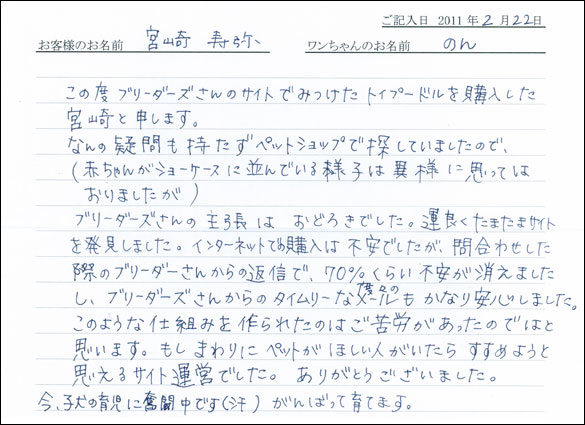 ご記入日 2011年2月22日
お客様のお名前 宮崎 寿弥 ワンちゃんのお名前 のん
この度ブリーダーズさんのサイトでみつけたトイプードルを購入した
宮崎と申します。
なんの疑問も持たずペットショップで探していましたので、
(赤ちゃんがショーケースに並んでいる様子は異様に思っては
おりましたが)
ブリーダーズさんの主張は おどろきでした。運良くたまたまサイト
を発見しました。インターネットでの購入は不安でしたが、問合わせした
際のブリーダーさんからの返信で、70%くらい不安が消えました
し、ブリーダーズさんからのタイムリーな度々のメールもかなり安心しました。
このような仕組みを作られたのはご苦労があったのではと
思います。もしまわりにペットがほしい人がいたらすすめようと
思えるサイト運営でした。ありがとうございました。
今、子犬の育児に奮闘中です(汗) がんばって育てます。